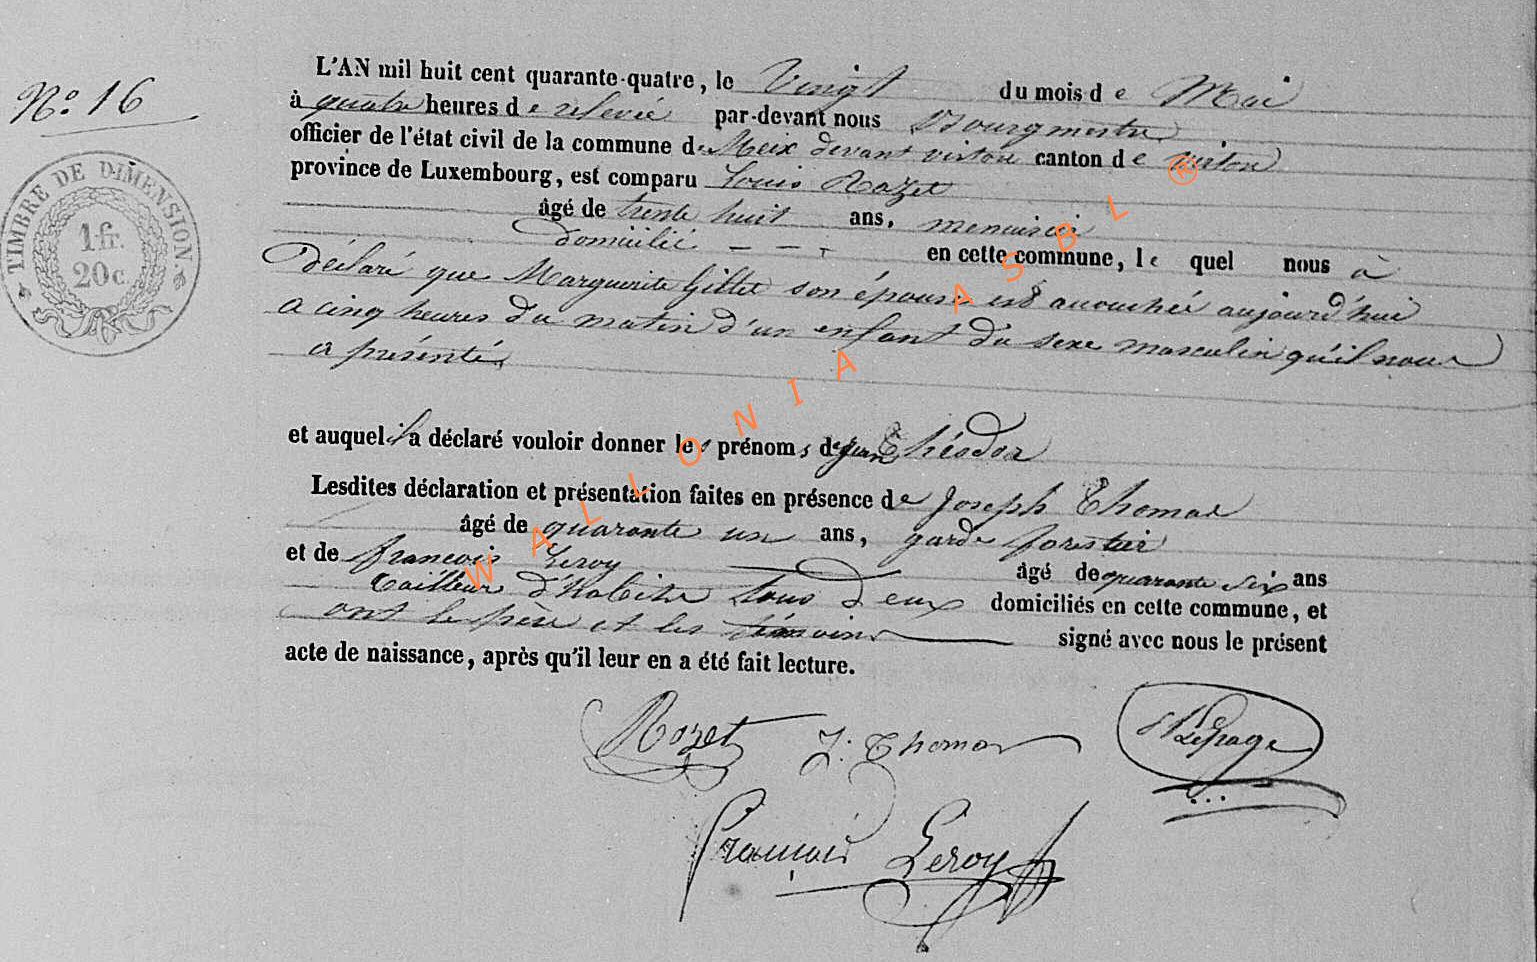 N.o 16
TIMBRE DE DIMENSION
1 fr.
20c.
L'AN mil huit cent quarante-quatre, le Vingt du mois de Mai
à quatre heures de relevée par-devant nous Bourgmestre
officier de l'état civil de la commune de Meix devant virton canton de virton
province de Luxembourg, est comparu Louis Rozet
âgé de trente huit ans, menuisier
domicilié - - - en cette commune, lequel nous à
déclaré que Marguerite Gillet son épouse est accouchée aujourd'hui
a cinq heures du matin d'un enfant du sexe masculin qu'il nous
a présenté,
et auquel il a déclaré vouloir donner les prénoms de jean Théodor
Lesdites déclaration et présentation faites en présence de Joseph Thomas
âgé de quarante un ans, garde forestier
et de françois Leroy âgé de quarante six ans
Tailleur d'habits tous deux domiciliés en cette commune, et
ont le père et les témoins signé avec nous le présent
acte de naissance, après qu'il leur en a été fait lecture.
Rozet J: Thomas Lepage
François Leroy
WALLONIA ASBL ®